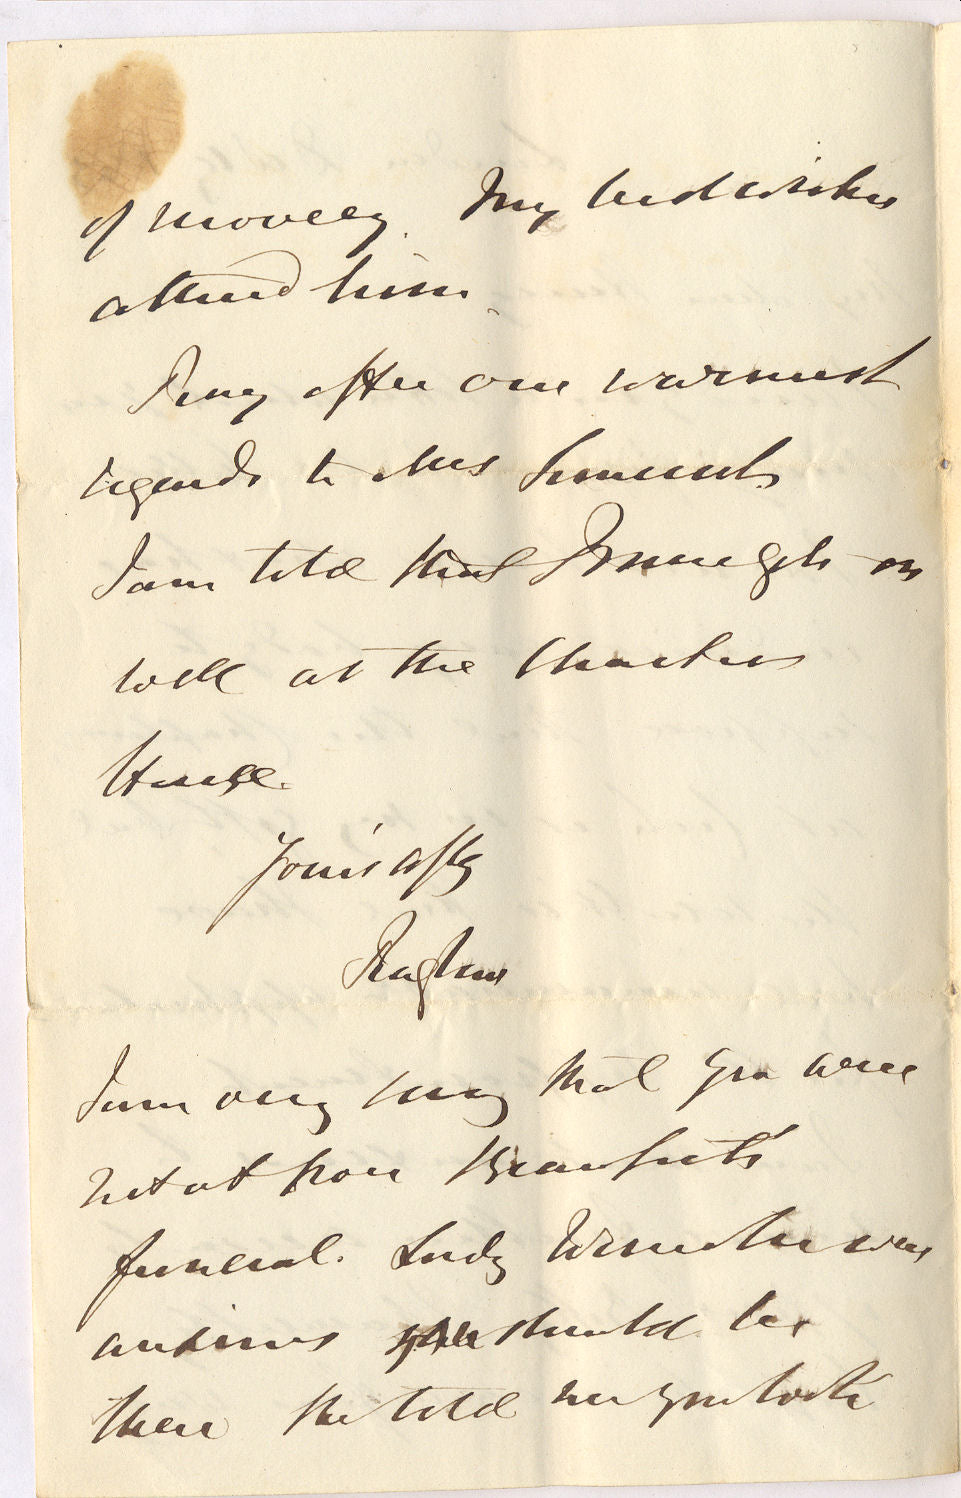 of moving. My best wishes
attend him.
Pray offer our warmest
regards to Mrs
I am told that gets on
well at the Charter
House.
Yours affly
Raglan
I am very sorry that you were
not at poor Beaufort's
funeral. Lady was
anxious you should be
there She told me you